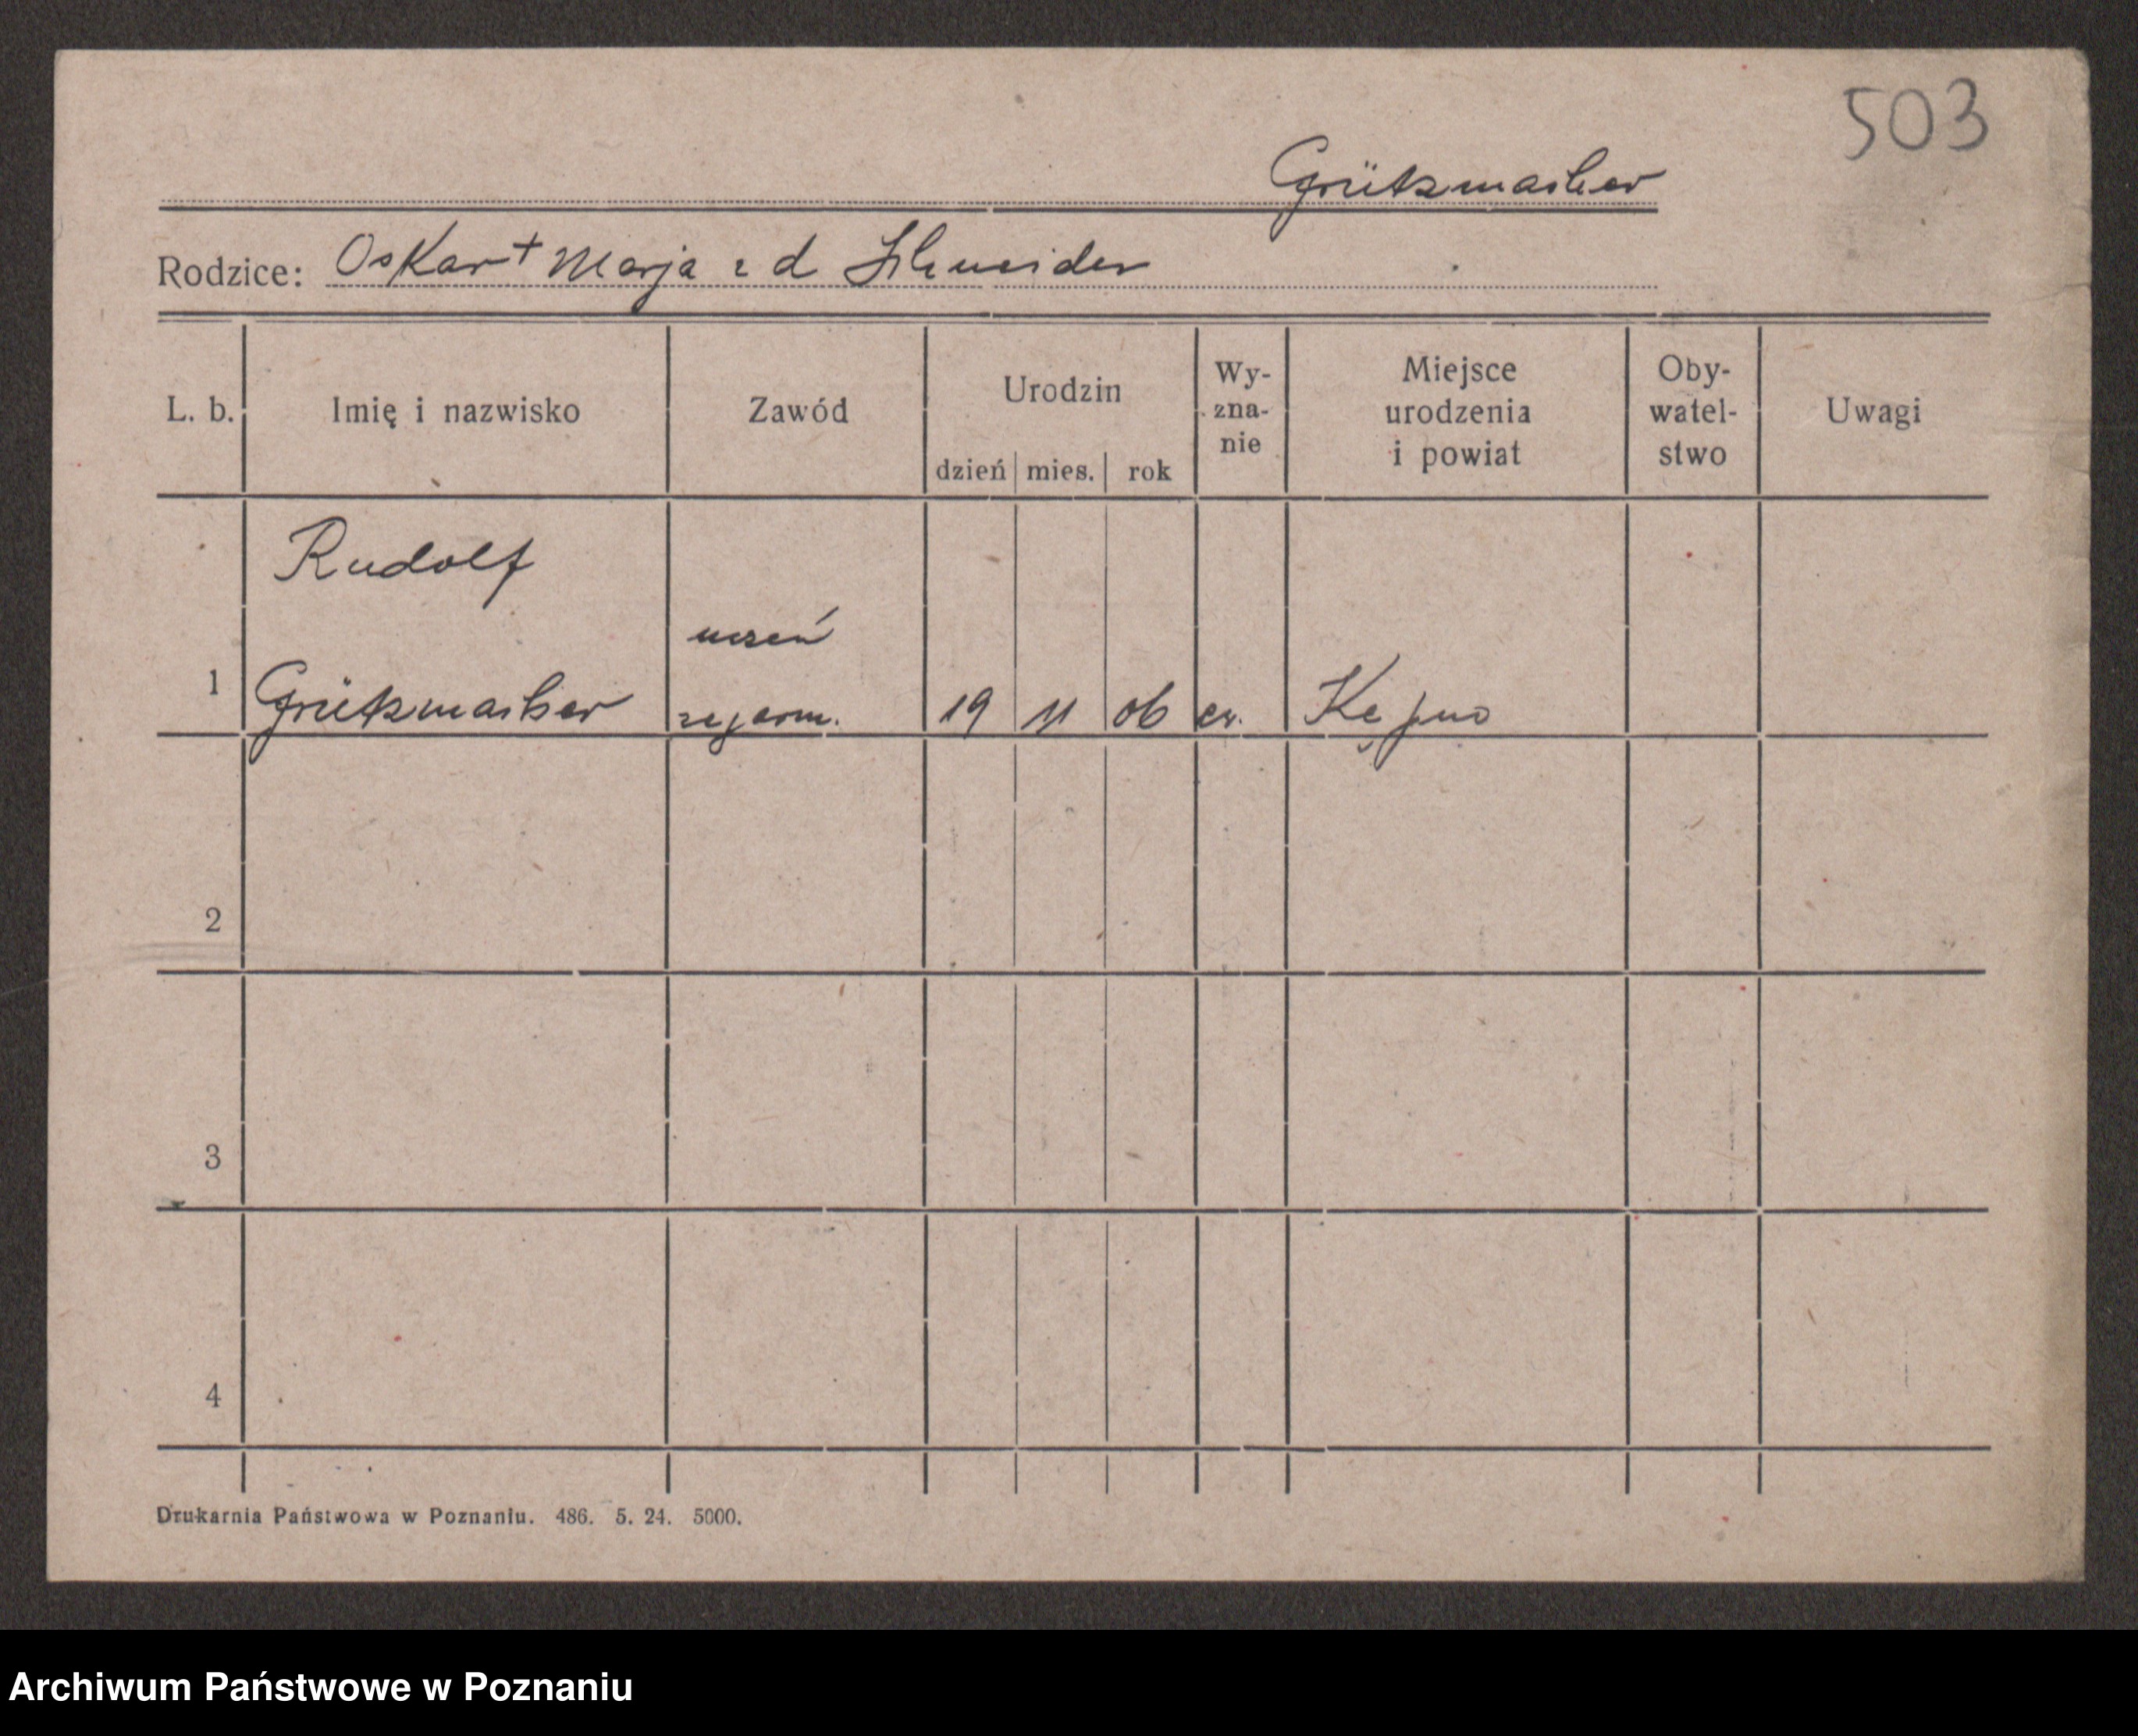 503
Grützmacher
Rodzice: Oskar + Marja z d Schneider
L. b. Imię i nazwisko Zawód Urodzin dzień mies. rok Wy-zna-nie Miejsce urodzenia i powiat Oby-watel-stwo Uwagi
Rudolf
uczeń
1 Grützmacher zegarm. 19 11 06 ew. Kępno
2
3
4
Drukarnia Państwowa w Poznaniu. 486. 5. 24. 5000.
Archiwum Państwowe w Poznaniu